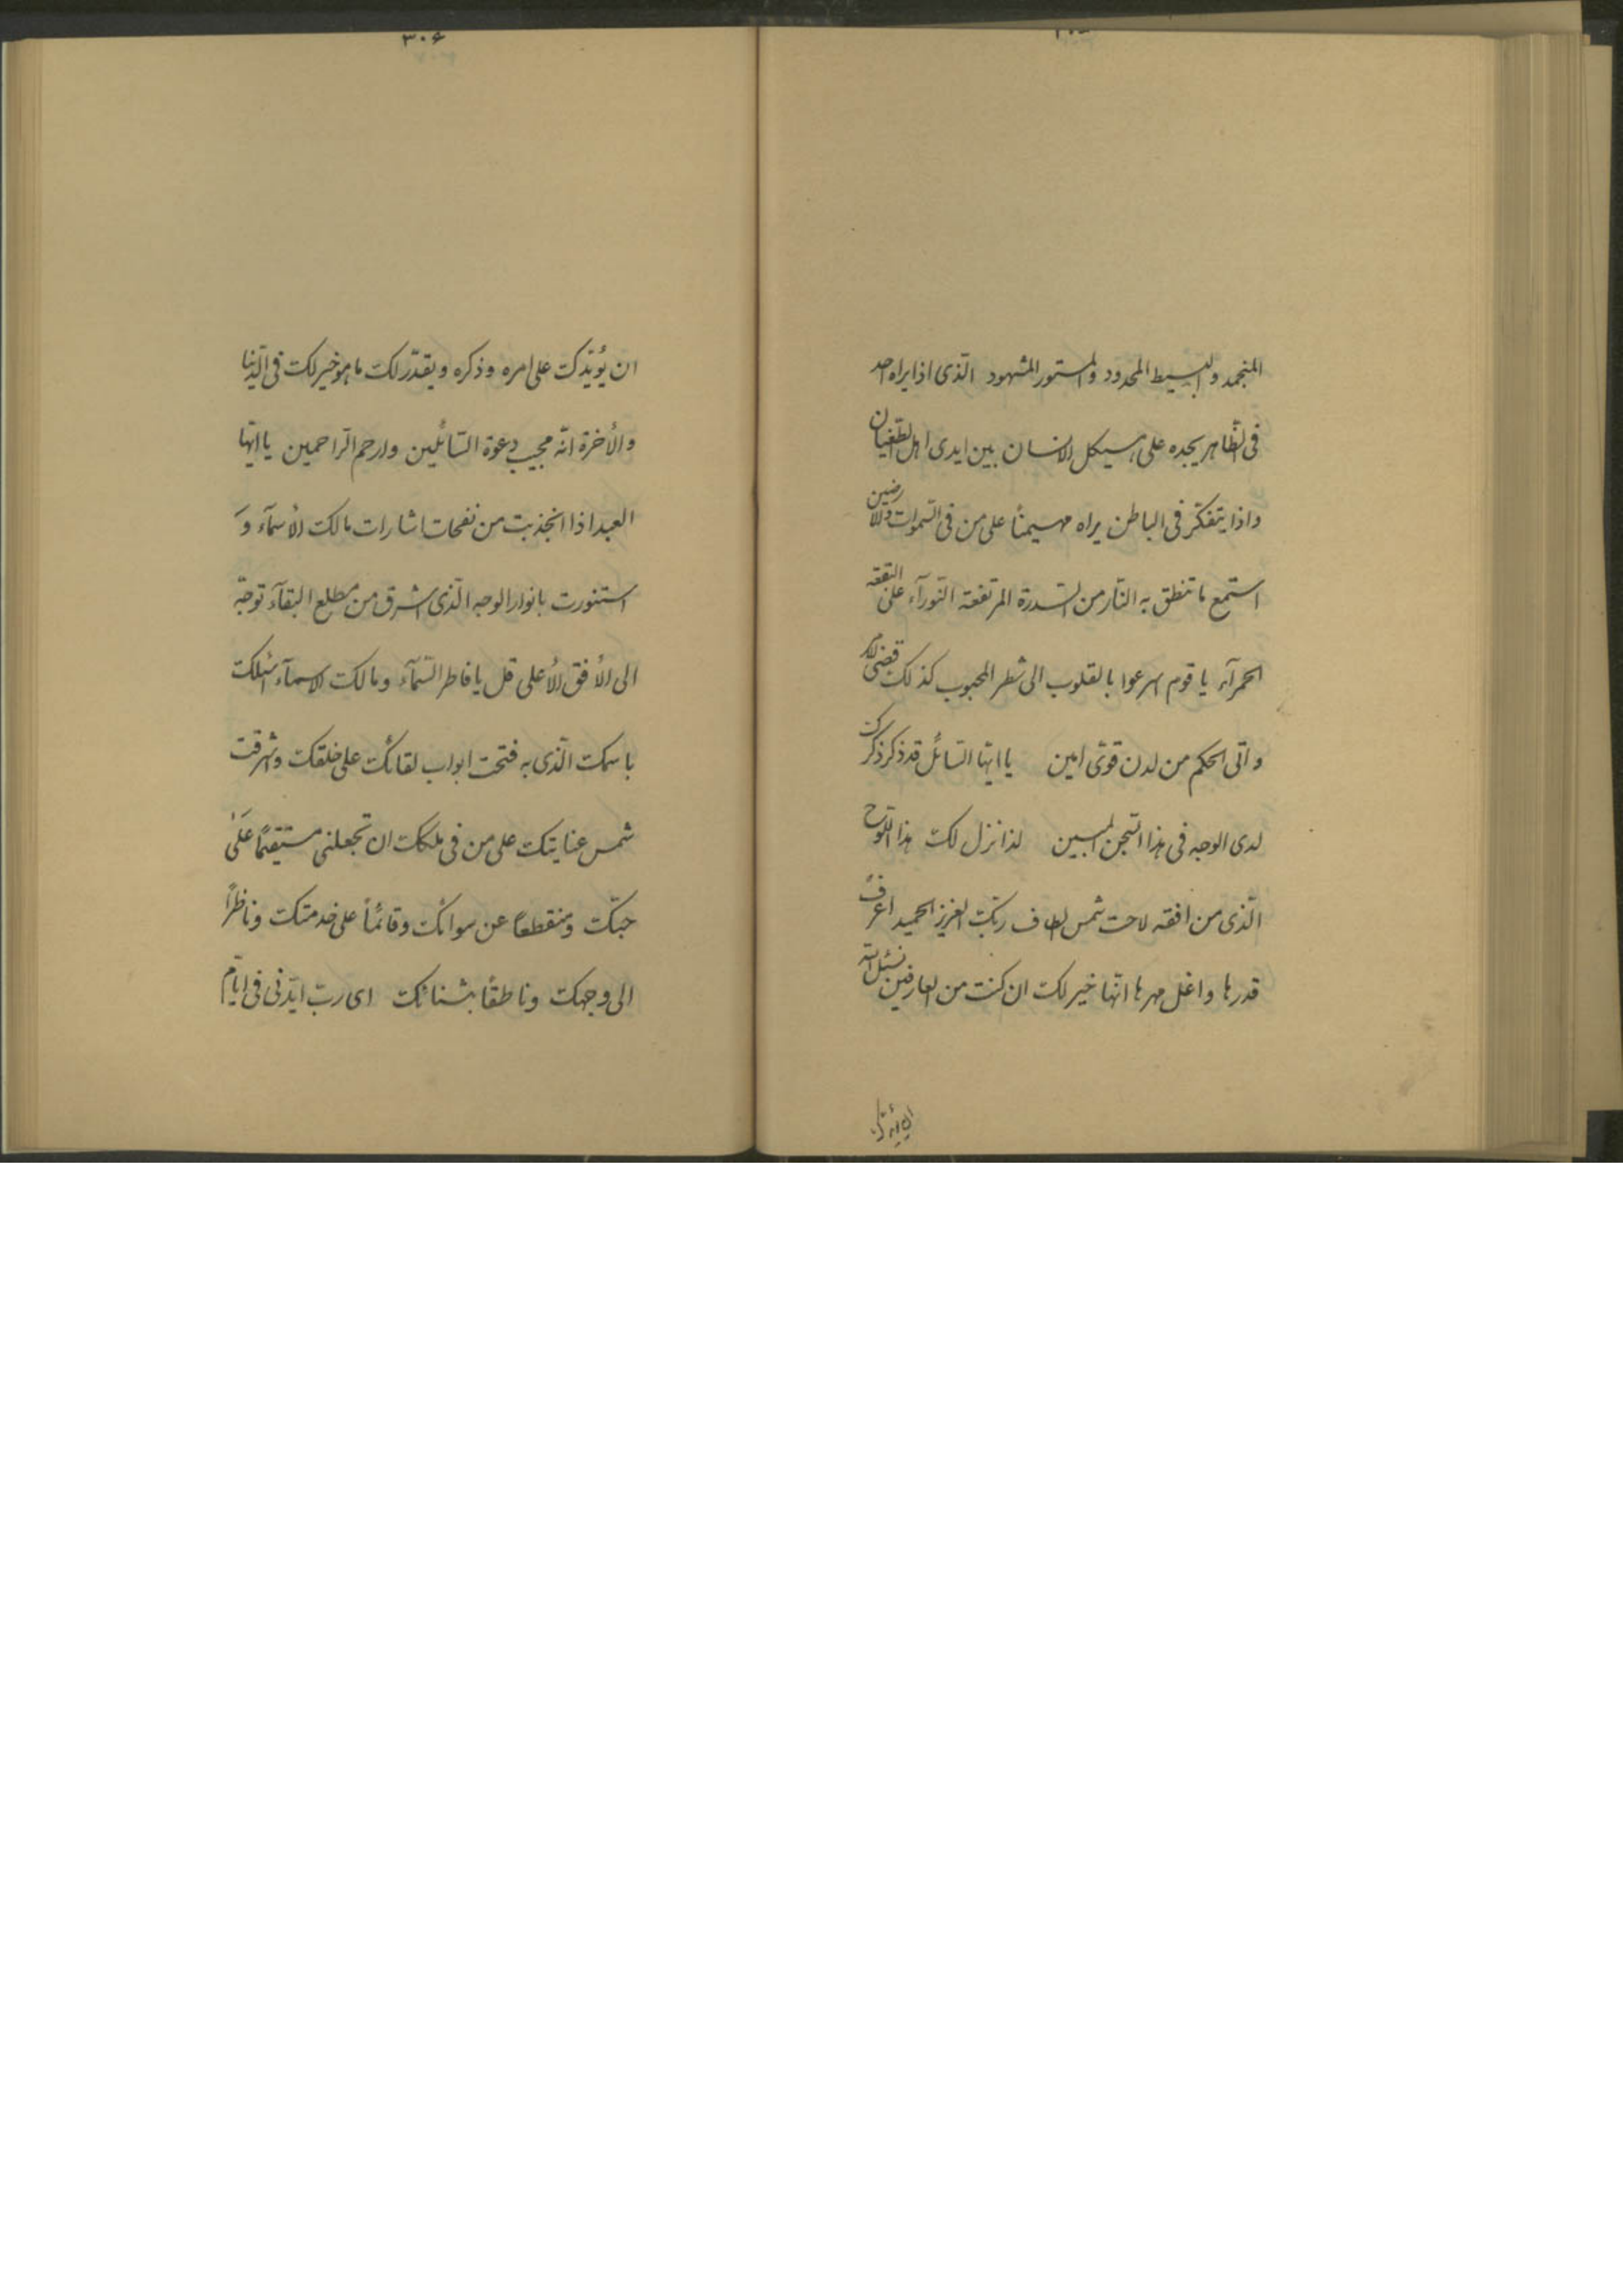 المنجمد والبسيط المحدود والمستور المشهود الّذی اذا يراه احد
فی الظّاهر يجده علی هيکل الانسان بين ايدی اهل الطّغيان
واذا يتفکّر فی الباطن يراه مهيمنًا علی من فی السّموات والارضين
استمع ما تنطق به النّار من السّدرة المرتفعة النّورآء علی البقعة
الحمرآء يا قوم اسرعوا بالقلوب الی شطر المحبوب کذلک قضی الامر
و اتی الحکم من لدن قویّ امين يا ايّها السّائل قد ذکر ذکرک
لدی الوجه فی هذا السّجن المبين لذا نزل لک هذا اللّوح
الّذی من افقه لاحت شمس الطاف ربّک العزيز الحميد اعرف
قدرها و اغل مهرها انّها خير لک ان کنت من العارفين نسئل الله
٣٠۶
ان يُؤيّدک علی امره وذکره ويقدّر لک ما هو خير لک فی الدّنيا
و الأخرة انّه مجيب دعوة السّائلين وارحم الرّاحمين يا ايّها
العبد اذا انجذبت من نفحات اشارات مالک الأسمآء وَ
استنورت بانوار الوجه الّذی اشرق من مطلع البقآء توجّه
الی الأفق الأعلی قل يا فاطر السّمآء ومالک الاسمآء اسئلک
باسمک الّذی به فتحت ابواب لقائک علی خلقک واشرقت
شمس عنايتک علی من فی ملکک ان تجعلنی مستقيمًا عَلیٰ
حبّک ومنقطعًا عن سوائک وقائمًا علی خدمتک وناظرًا
الی وجهک وناطقًا بثنائک ای ربّ ايّدنی فی ايّام